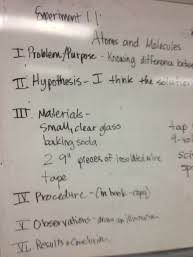 Experiment 1.1
Atoms and Molecules
I Problem/Purpose - Knowing difference betwe
II Hypothesis - I think the solution
III Materials -
Small, clear glass tap
baking soda
2 9" pieces of insulated wire
tape
IV Procedure - (in book - copy)
V Observations - draw an illustration
VI Results & Conclusion